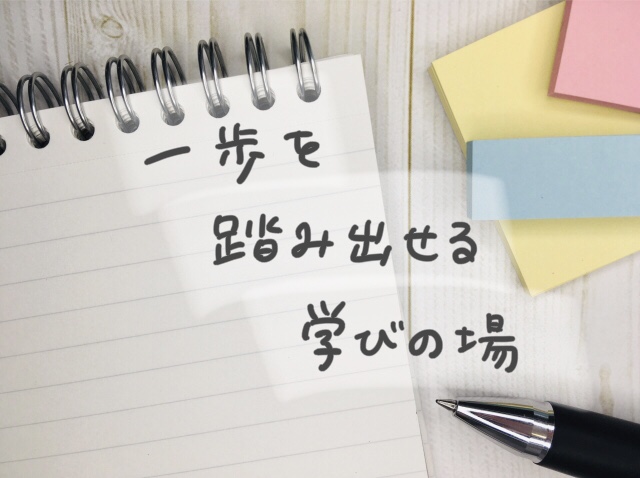 一歩を
踏み出せる
学びの場